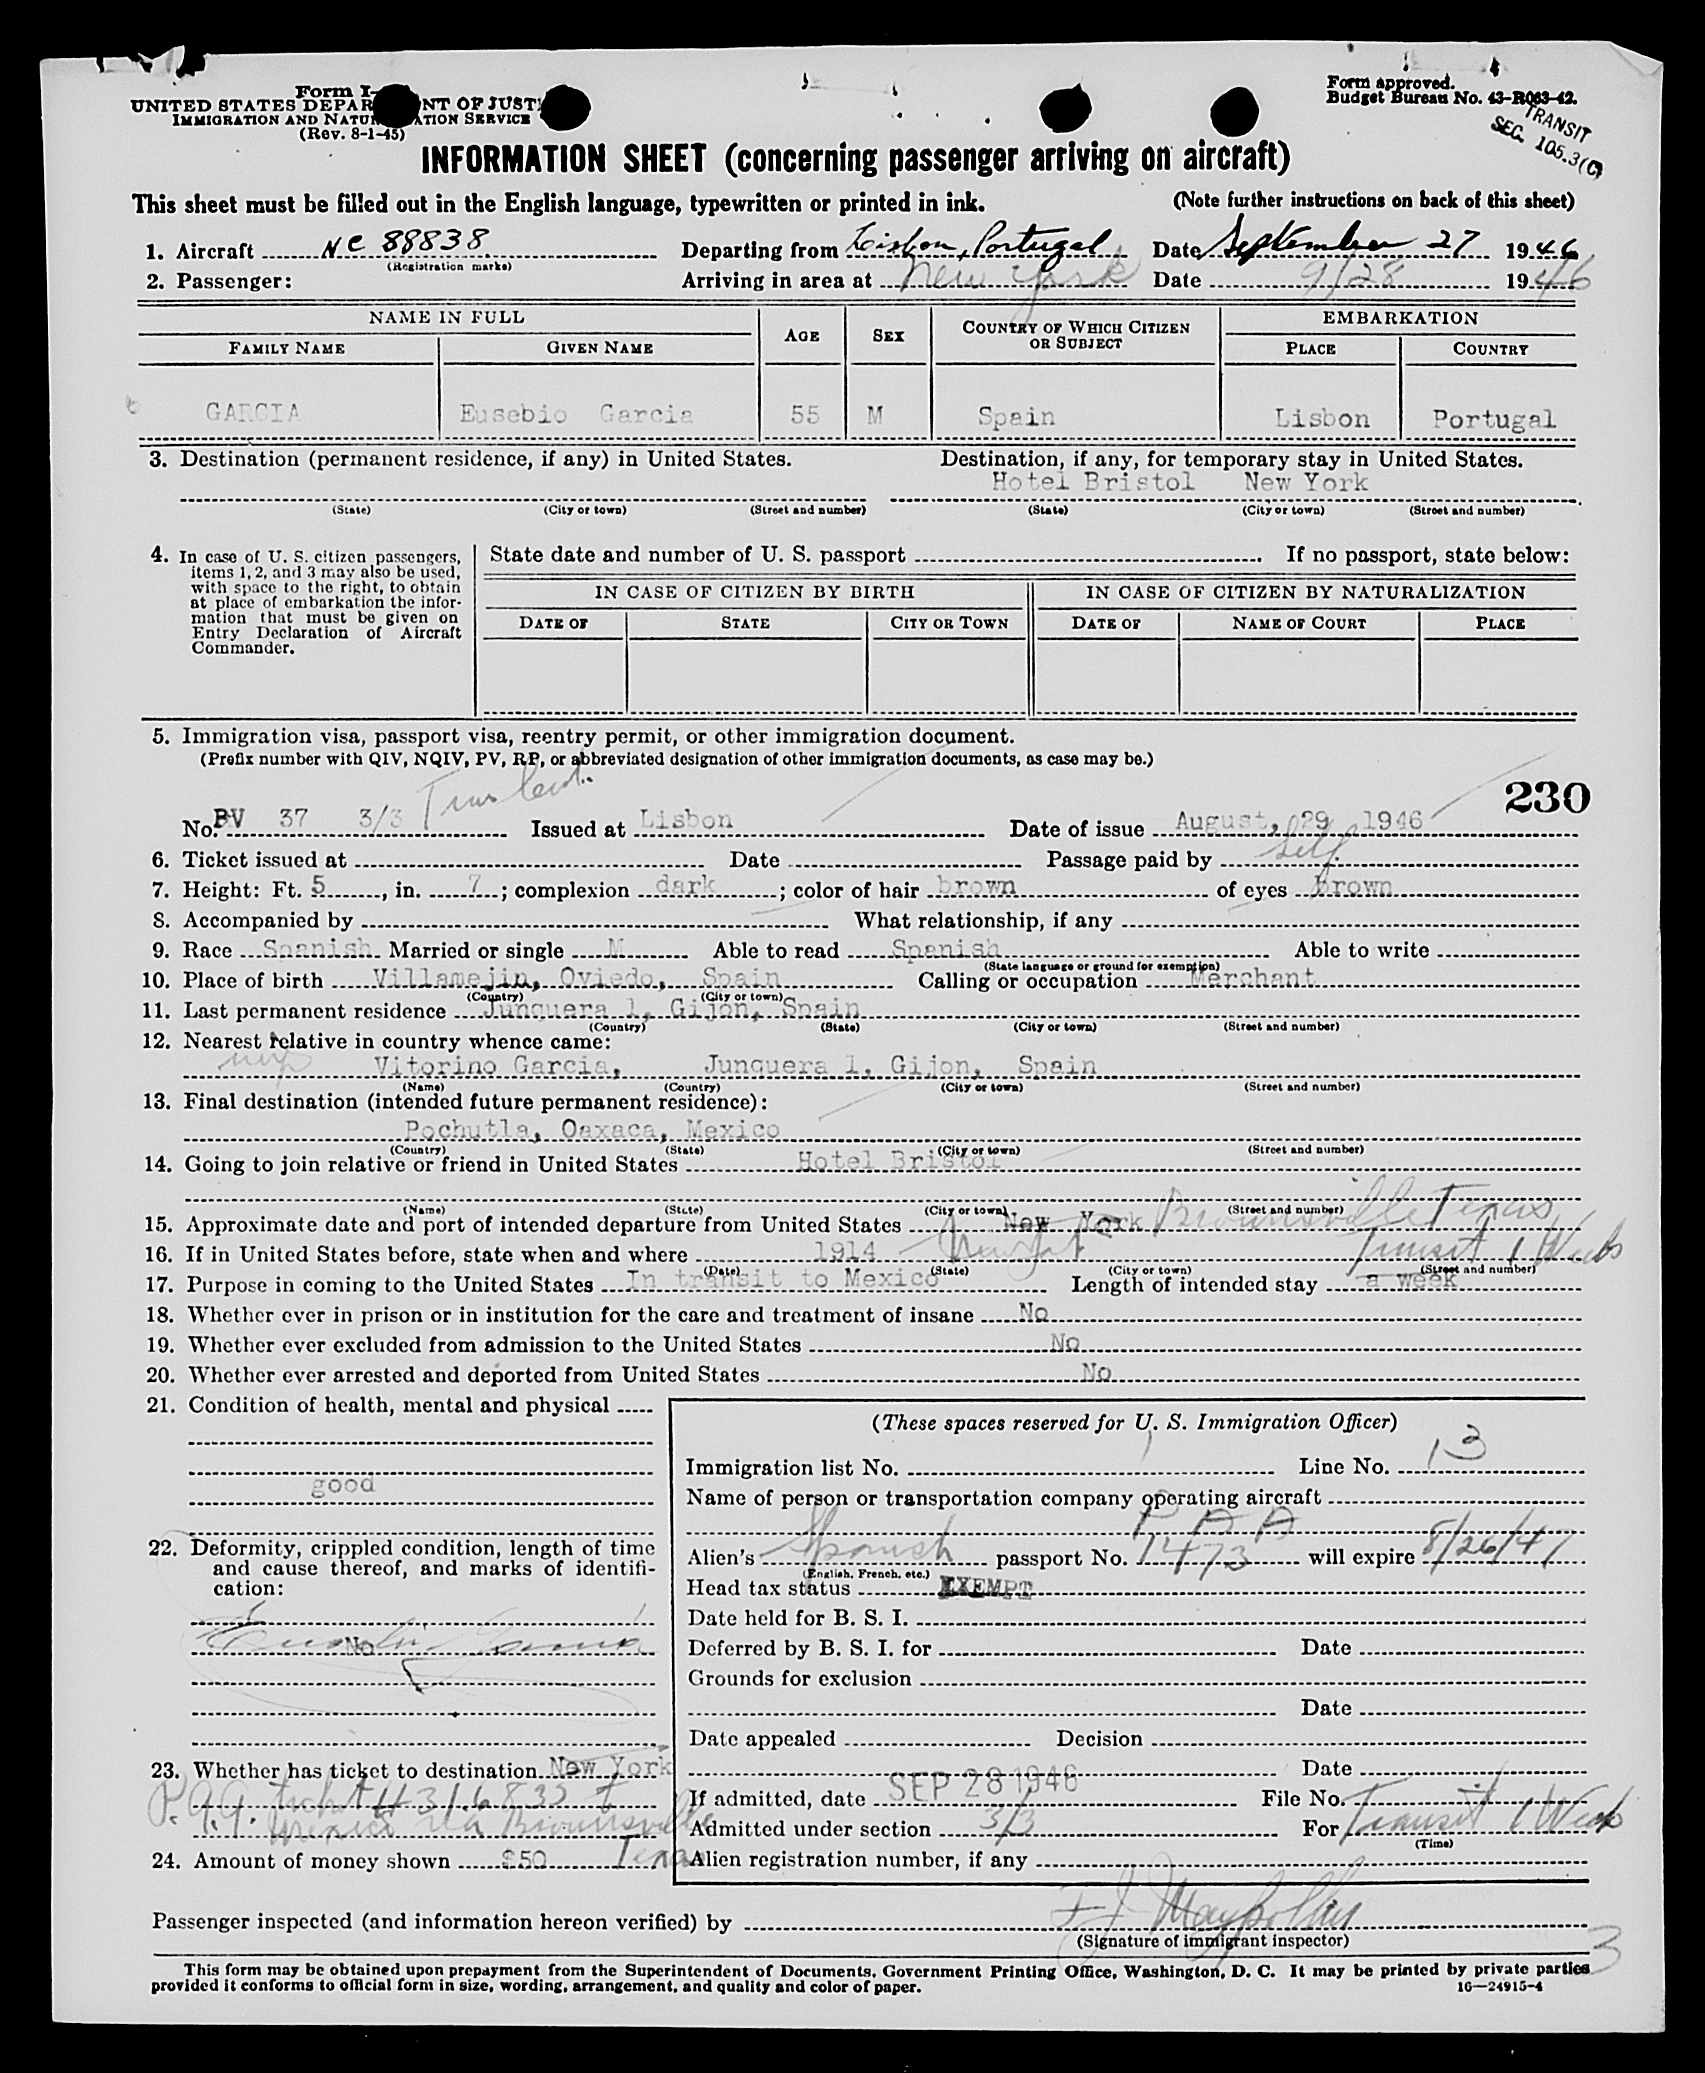 Form I-
UNITED STATES DEPAR NT OF JUST
IMMIGRATION AND NATU ATION SERVICE
(Rev. 8-1-45)
Form approved.
Budget Bureau No. 43-R063-42.
TRANSIT
SEC. 105.3(C)
INFORMATION SHEET (concerning passenger arriving on aircraft)
This sheet must be filled out in the English language, typewritten or printed in ink. (Note further instructions on back of this sheet)
1. Aircraft NC 88838 Departing from Lisbon, Portugal Date September 27 1946
(Registration marks)
2. Passenger: Arriving in area at New York Date 9/28 1946
NAME IN FULL AGE SEX COUNTRY OF WHICH CITIZEN OR SUBJECT EMBARKATION
FAMILY NAME GIVEN NAME PLACE COUNTRY
GARCIA Eusebio Garcia 55 M Spain Lisbon Portugal
3. Destination (permanent residence, if any) in United States. Destination, if any, for temporary stay in United States.
Hotel Bristol New York
(State) (City or town) (Street and number) (State) (City or town) (Street and number)
4. In case of U. S. citizen passengers,
items 1, 2, and 3 may also be used,
with space to the right, to obtain
at place of embarkation the infor-
mation that must be given on
Entry Declaration of Aircraft
Commander.
State date and number of U. S. passport If no passport, state below:
IN CASE OF CITIZEN BY BIRTH IN CASE OF CITIZEN BY NATURALIZATION
DATE OF STATE CITY OR TOWN DATE OF NAME OF COURT PLACE
5. Immigration visa, passport visa, reentry permit, or other immigration document.
(Prefix number with QIV, NQIV, PV, RP, or abbreviated designation of other immigration documents, as case may be.)
230
No. PV 37 3/3 Issued at Lisbon Date of issue August, 29 1946
6. Ticket issued at Date Passage paid by Self
7. Height: Ft. 5, in. 7; complexion dark; color of hair brown of eyes brown
8. Accompanied by What relationship, if any
9. Race Spanish Married or single M Able to read Spanish Able to write
(State language or ground for exemption)
10. Place of birth Villamejin, Oviedo, Spain Calling or occupation Merchant
(Country) (City or town)
11. Last permanent residence Junquera 1, Gijon, Spain
(Country) (State) (City or town) (Street and number)
12. Nearest relative in country whence came:
Vitorino Garcia, Junquera 1, Gijon, Spain
(Name) (Country) (City or town) (Street and number)
13. Final destination (intended future permanent residence):
Pochutla, Oaxaca, Mexico
(Country) (State) (City or town) (Street and number)
14. Going to join relative or friend in United States Hotel Bristol
(Name) (State) (City or town) (Street and number)
15. Approximate date and port of intended departure from United States New York Brownsville Texas
16. If in United States before, state when and where 1914 New York Transit 1 Week
(Date) (State) (City or town) (Street and number)
17. Purpose in coming to the United States In transit to Mexico Length of intended stay a week
18. Whether ever in prison or in institution for the care and treatment of insane No
19. Whether ever excluded from admission to the United States No
20. Whether ever arrested and deported from United States No
21. Condition of health, mental and physical
good
22. Deformity, crippled condition, length of time
and cause thereof, and marks of identifi-
cation:
No
23. Whether has ticket to destination New York
P.A.A. ticket # 316835 to
Mexico via Brownsville
Texas
24. Amount of money shown $50
(These spaces reserved for U. S. Immigration Officer)
Immigration list No. Line No. 13
Name of person or transportation company operating aircraft
P A A
Alien's Spanish passport No. 1473 will expire 8/26/47
(English, French, etc.)
Head tax status EXEMPT
Date held for B. S. I.
Deferred by B. S. I. for Date
Grounds for exclusion
Date
Date appealed Decision
Date
If admitted, date SEP 28 1946 File No.
Admitted under section 3/3 For Transit 1 Week
(Time)
Alien registration number, if any
Passenger inspected (and information hereon verified) by
(Signature of immigrant inspector)
3
This form may be obtained upon prepayment from the Superintendent of Documents, Government Printing Office, Washington, D. C. It may be printed by private parties
provided it conforms to official form in size, wording, arrangement, and quality and color of paper. 16—24915-4